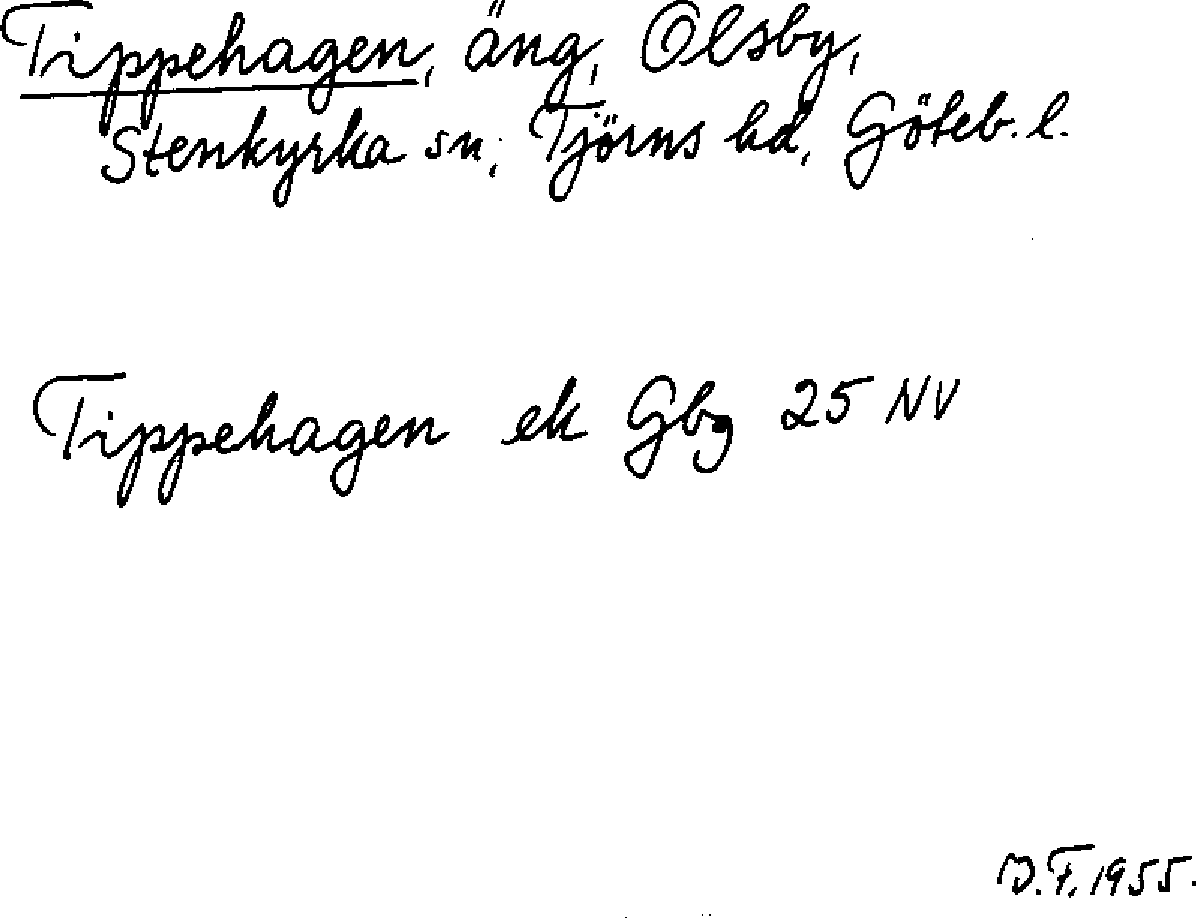 Tippehagen, äng, Olsby,
Stenkyrka sn, Tjörns hd, Göteb. l.
Tippehagen ek Gbg 25 NV
D.F. 1955.